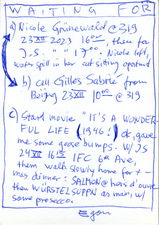 WAITING FOR
a) Nicole Grünewald @ 319
23 XII 2023 16⁰⁰ then for
J.S. " " 17⁰⁰. Nicole left,
with spill in her cat sitting apartment
b) call Gilles Sabrie from
Beijing 23 XII 10⁰⁰ @ 319
c) Start movie "IT'S A WONDER-
FUL LIFE (1946!) ok, gave
me some goose bumps. W/JS
24 XII 16¹⁵ IFC 6th Ave,
then walk slowly home for x-
mas dinner: SALMON @ hors d'ouvre
then WÜRSTELSUPPN as main, w/
some prosecco.
Egon